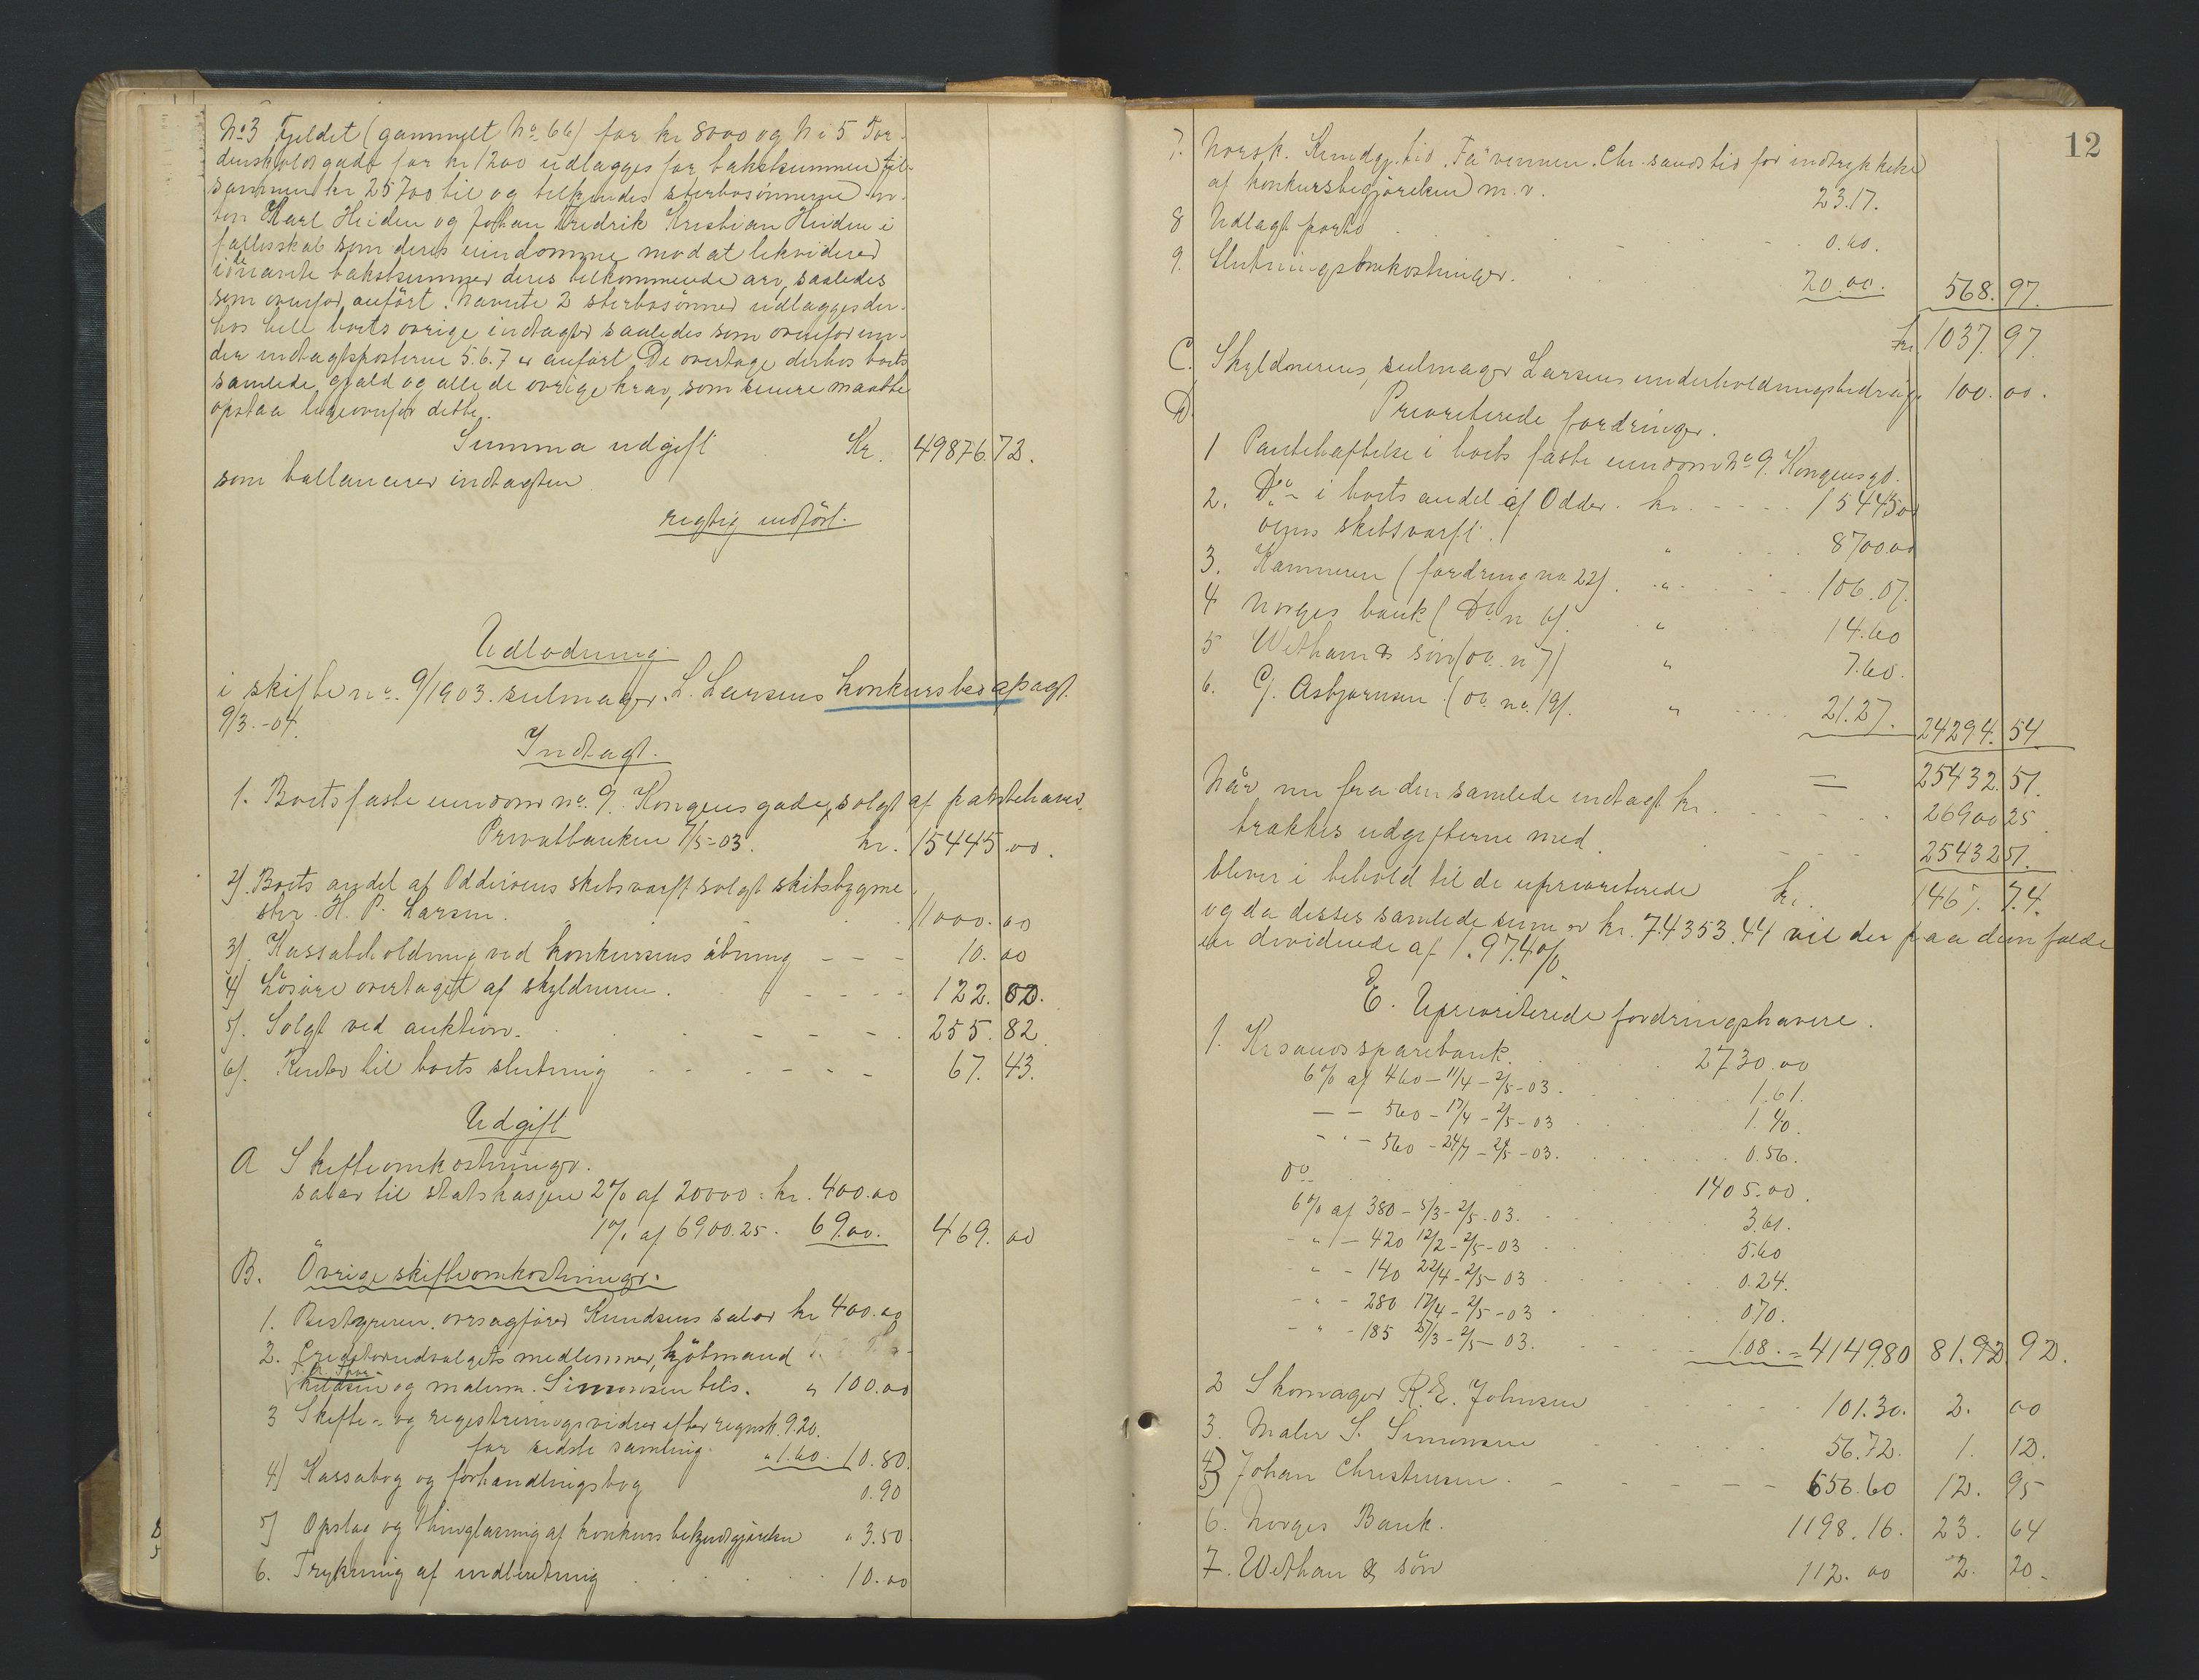 No 3 Fjeldet (gammelt No 66) for kr 8000 og No 5 Tor-
denskjolds gade for kr 1200 udlægges for takstsummen til-
sammen kr 25700 til og tilkjendes sterbosønnerne
Karl Heiden og Johan Fredrik Kristian Heiden i
fællesskab som deres eiendomme mod at likviderer
i de nævnte takstsummer deres tilkommende arv, saaledes
som ovenfor anført. Nævnte 2 sterbosønner udlægges der-
hos hele boets øvrige indtægter saaledes som ovenfor un-
der indtægtsposterne 5.6.7 er anført. De overtage derhos boets
samlede gjæld og alle de øvrige krav, som senere maatte
opstaa ligeoverfor dette.
Summa udgift Kr. 49876 72.
som ballancerer indtægten
rigtig indført.
Udlodning
i skifte no. 9/1903. seilmager L. Larsens konkursbo afsagt
9/3.-04.
Indtægt.
1. Boets faste eiendom no. 9. Kongens gade, solgt af panthaver
Privatbanken 7/5-03. kr. 15445 00.
2). Boets andel af Odderøens skibsværft solgt skibsbygme-
ster H. P. Larsen. 11000. 00
3). Kassabeholdning ved konkursens åbning - - - 10. 00
4) Løsøre overtaget af skyldneren. - - - - 122. 00.
5). Solgt ved auktion. - - - - 255. 82.
6). Renter til boets slutning - - - - - 67. 43.
Udgift
A Skifteomkostninger.
salær til statskassen 2% af 20000 = kr. 400.00
1% af 6900.25. 69.00. 469. 00
B. Øvrige skifteomkostninger.
1. Bestyreren, overs agfører Knudsens salær kr 400.00
2. Creditorudvalgets medlemmer, kjøbmand
og malerm. Simonsen tils. " 100.00
3 Skifte- og registreringsvidner efter regnsk. 9.20.
for sidste samling " 1.60. 10.80.
4) Kassabog og forhandlingsbog 0.90
5) Opslag og thinglæsning af konkurs bekjendtgjørelse " 3.50
6. Trykning af indberetning 10.00
12
7. Norsk. Kundgj. tid. Fæ"vennen. Chr.sands tid for indrykkelse
af konkursbegjæreken m.v. 23.17.
8 Udlagt porto 0.60.
9. Slutningsomkostninger. 20.00. 568. 97.
kr 1037. 97.
C. Skyldnerens, seilmager Larsens underholdningsbidrag 100. 00.
D. Prioriterede fordringer.
1 Pantehæftelse i boets faste eiendom No 9. Kongensgd.
kr. - - - - 15445.00
2. Do i boets andel af Odder-
øens skibsværft. " 8700.00
3. Kæmneren (fordring no 22). " 106.07.
4 Norges bank (Do n 6). " 14.60
5 Wetham & søn (do. n 7) " 7.60.
6. G. Asbjørnsen (do. no. 19). " 21.27. 24294. 54.
= 25432. 51.
Når nu fra den samlede indtægt kr. 26900 25.
trækkes udgifterne med 25432 51.
bliver i behold til de uprioriterede kr. 1467. 74.
og da disses samlede sum er kr. 74353.44 vil der paa dem falde
en dividende af 1.974%.
E. Uprioriterede fordringshavere.
1. Krsands sparebank. 2730.00
6% af 460 - 11/4 - 2/5 - 03. 1.61.
- - 560 - 17/4 - 2/5 - 03 1.40.
- " - 560 - 24/4 - 2/5 - 03. 0.56.
do 1405.00.
6% af 380 - 5/3 - 2/5 - 03. 3.61.
- " - 420 12/2 - 2/5 - 03 5.60
- " - 140 22/4 - 2/5 - 03 0.24.
- " - 280 17/4 - 2/5 - 03 0.70.
- " - 185 27/3 - 2/5 - 03. 1.08. = 4149.80 81. 92.
2 Skomager R. E. Johnsen 101.30. 2. 00
3. Maler S. Simonsen 56.72. 1. 12.
4) 5) Johan Christensen. - - - - - 656.60 12. 95
6. Norges Bank. 1198.16. 23. 64
7. Wetham & søn 112.00 2. 20.